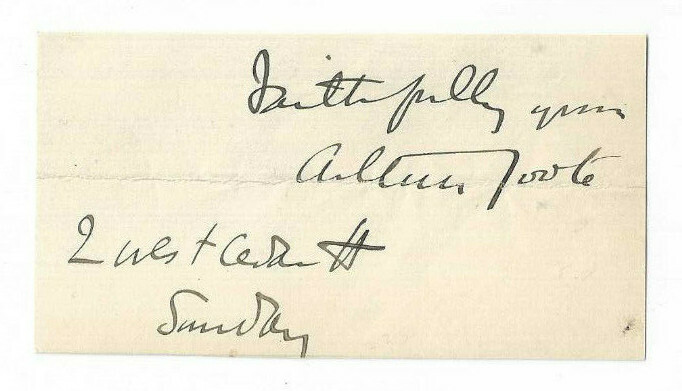 Faithfully yours
Arthur Foote
2 West Cedar St
Sunday